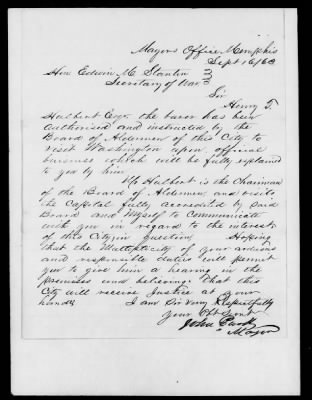 Mayors Office, Memphis
Sept 16/63
Hon Edwin M. Stanton
Secretary of War
Sir
Henry T.
Hulbert Esqr. the barer has been
authorised and instructed by the
Board of Aldermen of this City to
visit Washington upon official
buisness which will be fully explained
to you by him
Mr Hulbert is the Chairman
of the Board of Aldermen and visits
the Capital fully accredited by said
Board and Myself to Communicate
with you in regard to the interests
of this City in question Hoping
that the Multiplicity of your arduous
and responsible duties will permit
you to give him a hearing in the
premises and believing that this
City will receive Justice at your
hands I am Sir Very Respectfully
Your Obt Servt
John Park
Mayor